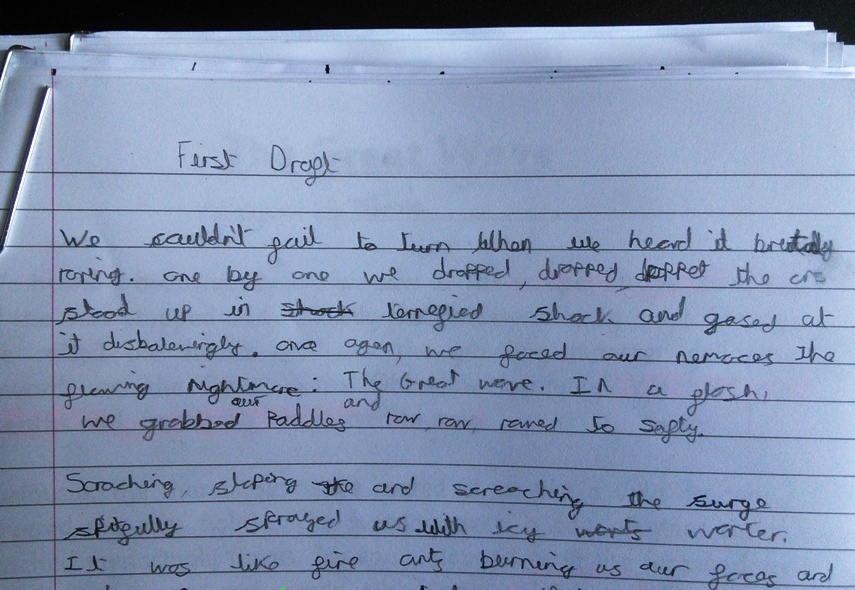 First Draft
We couldn't fail to turn when we heard it brutally
roring. one by one we dropped, dropped, droppet the ors
stood up in shock terrefied shock and gased at
it disbalevingly. once agen, we faced our nemaces the
flowing nightmare: The Great wave. In a flash,
our and
we grabbed Paddles row, row, rowed to safty.
Scraching, slaping the and screaching the surge
spitfully sprayed us with icy worter.
It was like fire ants burning us our faces and